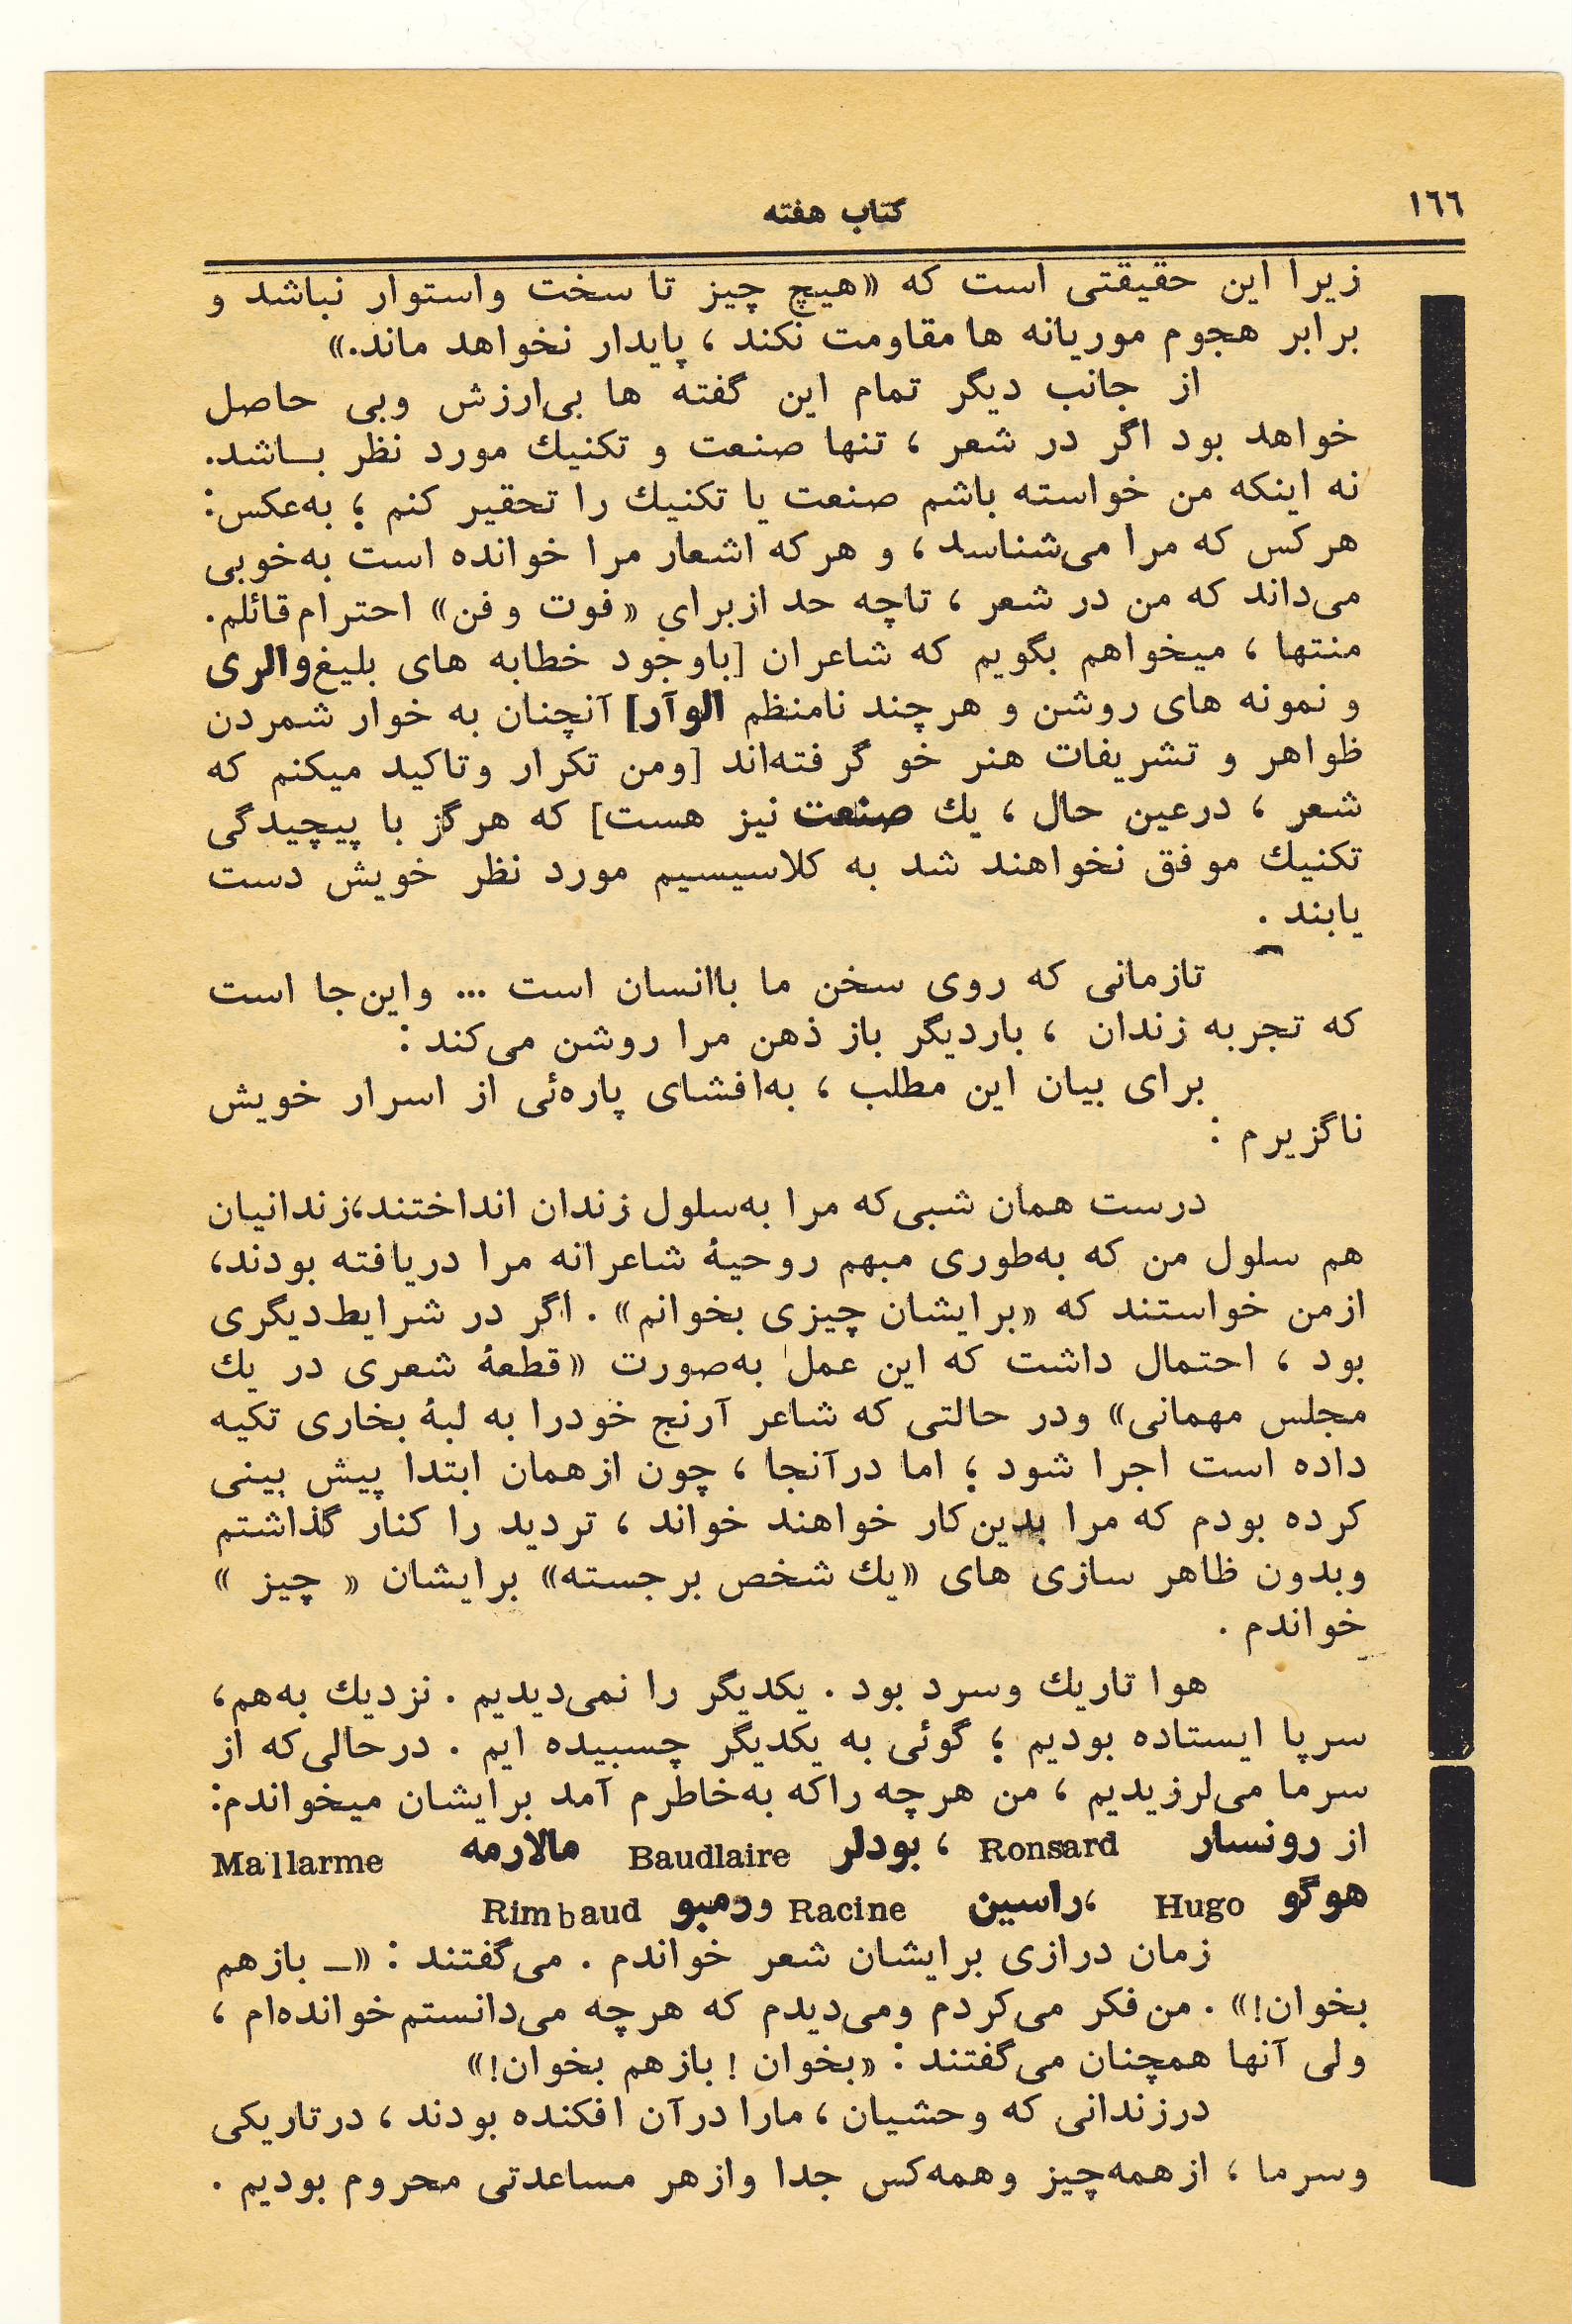 ١٦٦
کتاب هفته
زیرا این حقیقتی است که «هیچ چیز تا سخت واستوار نباشد و
برابر هجوم موریانه ها مقاومت نکند ، پایدار نخواهد ماند.»
از جانب دیگر تمام این گفته ها بی‌ارزش وبی حاصل
خواهد بود اگر در شعر ، تنها صنعت و تکنیك مورد نظر بـاشد.
نه اینکه من خواسته باشم صنعت یا تکنیك را تحقیر کنم ؛ به‌عکس:
هرکس که مرا می‌شناسد ، و هرکه اشعار مرا خوانده است به‌خوبی
می‌داند که من در شعر ، تاچه حد ازبرای «فوت وفن» احترام قائلم.
منتها ، میخواهم بگویم که شاعران [باوجود خطابه های بلیغ والری
و نمونه های روشن و هرچند نامنظم الوآر] آنچنان به خوار شمردن
ظواهر و تشریفات هنر خو گرفته‌اند [ومن تکرار وتاکید میکنم که
شعر ، درعین حال ، یك صنعت نیز هست] که هرگز با پیچیدگی
تکنیك موفق نخواهند شد به کلاسیسیم مورد نظر خویش دست
یابند .
تازمانی که روی سخن ما باانسان است ... واین‌جا است
که تجربه زندان ، باردیگر باز ذهن مرا روشن می‌کند :
برای بیان این مطلب ، به‌افشای پاره‌ئی از اسرار خویش
ناگزیرم :
درست همان شبی‌که مرا به‌سلول زندان انداختند،زندانیان
هم سلول من که به‌طوری مبهم روحیهٔ شاعرانه مرا دریافته بودند،
ازمن خواستند که «برایشان چیزی بخوانم» . اگر در شرایط‌دیگری
بود ، احتمال داشت که این عمل به‌صورت «قطعهٔ شعری در یك
مجلس مهمانی» ودر حالتی که شاعر آرنج خودرا به لبهٔ بخاری تکیه
داده است اجرا شود ؛ اما درآنجا ، چون ازهمان ابتدا پیش بینی
کرده بودم که مرا بدین‌کار خواهند خواند ، تردید را کنار گذاشتم
وبدون ظاهر سازی های «یك شخص برجسته» برایشان « چیز »
خواندم .
هوا تاریك وسرد بود . یکدیگر را نمی‌دیدیم . نزدیك به‌هم،
سرپا ایستاده بودیم ؛ گوئی به یکدیگر چسبیده ایم . درحالی‌که از
سرما می‌لرزیدیم ، من هرچه راکه به‌خاطرم آمد برایشان میخواندم:
از رونسار Ronsard ، بودلر Baudlaire مالارمه Mallarme
هوگو Hugo ،راسین Racine ورمبو Rimbaud
زمان درازی برایشان شعر خواندم . می‌گفتند : «ــ بازهم
بخوان!» . من‌فکر می‌کردم ومی‌دیدم که هرچه می‌دانستم‌خوانده‌ام ،
ولی آنها همچنان می‌گفتند : «بخوان ! بازهم بخوان!»
درزندانی که وحشیان ، مارا درآن افکنده بودند ، درتاریکی
وسرما ، ازهمه‌چیز وهمه‌کس جدا وازهر مساعدتی محروم بودیم .